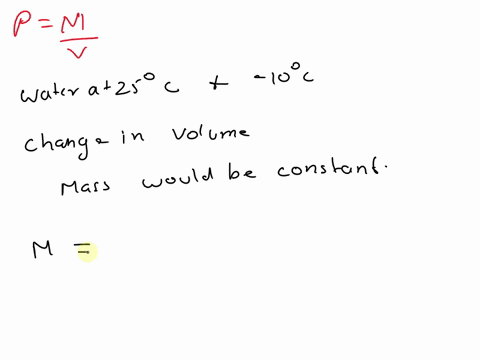 P = M
V
water at 25°C + -10°C
change in volume
Mass would be constant.
M =